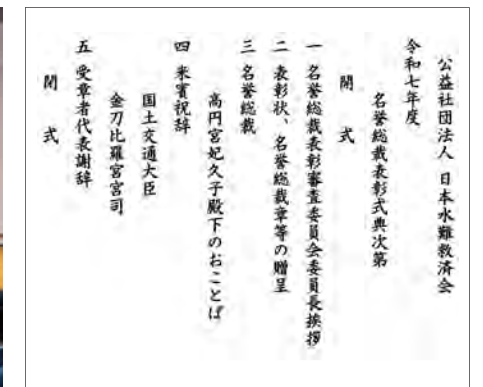 公益社団法人 日本水難救済会
令和七年度
名誉総裁表彰式典次第
開 式
一 名誉総裁表彰審査委員会委員長挨拶
二 表彰状、名誉総裁章等の贈呈
三 名誉総裁
高円宮妃久子殿下のおことば
四 来賓祝辞
国土交通大臣
金刀比羅宮宮司
五 受章者代表謝辞
閉 式